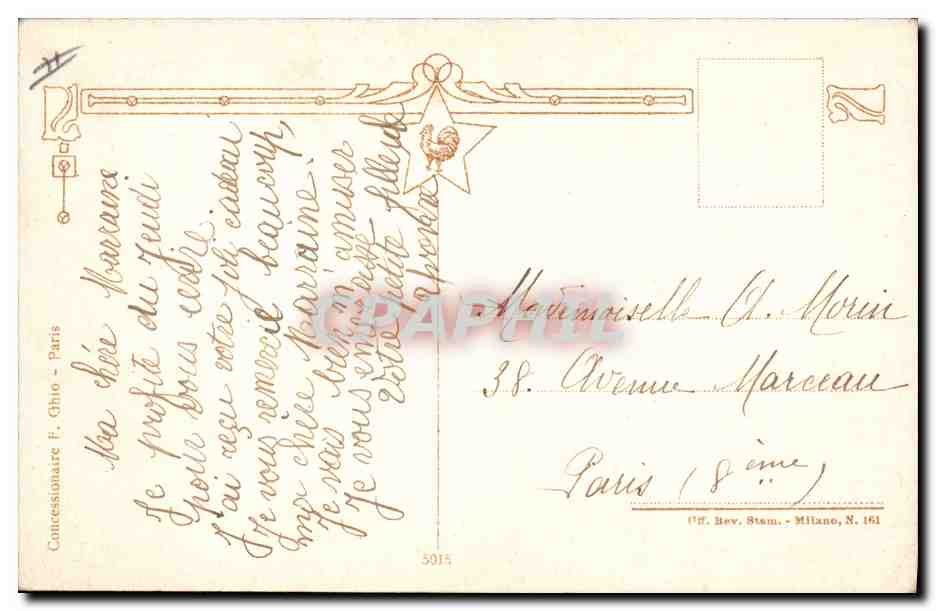 Ma chère Marraine
Je profite du Jeudi
pour vous ecrire.
J'ai reçu votre joli cadeau
Je vous remercie beaucoup,
ma chère Marraine.
Je vais bien m'amuser
Je vous embrasse
votre petite filleule
Mademoiselle Ch. Morin
38. Avenue Marceau
Paris (8ème)
Concessionaire F. Ghio - Paris
Uff. Rev. Stam. - Milano, N. 161
5015
CPAPHIL